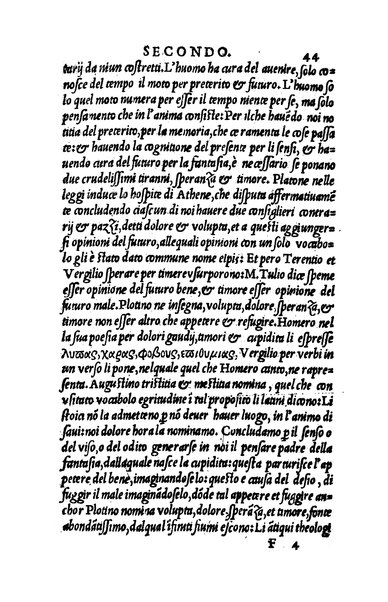 SECONDO. 44
tarij da niun costretti. L'huomo ha cura del auenire, solo co-
nosce del tempo il moto per preterito & futuro. L'huomo so
lo quel moto numera per esser il tempo niente per se, ma solo
pensamento che in l'anima consiste: Per ilche hauēdo noi no
titia del preterito, per la memoria, che ce ramenta le cose passa
te: & hauendo la cognitione del presente per li sensi, & ha-
uendo cura del futuro per la fantasia, è necessario se ponano
due crudelissimi tiranni, sperāza & timore. Platone nelle
leggi induce lo hospite di Athene, che disputa affermatiuamē
te concludendo ciascun di noi hauere dui consiglieri contra-
rij & pazzi, detti dolore & volupta, et a questi aggiungersi
opinioni del futuro, allequali opinioni con un solo vocabo-
lo gli è stato dato commune nome elpis: Et pero Terentio et
Vergilio sperare per timere vsurporono: M. Tulio dice speme
esser opinione del futuro bene, & timore esser opinione del
futuro male. Plotino ne insegna, volupta, dolore, sperāza, &
timore non esser altro che appetere & refugire. Homero nel
la sua poesia per dolori gaudij, timori & cupidita li espresse
λυπας, χαρας, φοβους, επιθυμιας, Vergilio per verbi in
un verso li pone, nelquale quel che Homero canto, ne rapre-
senta. Augustino tristitia & mestitia nomina, quel che con
vsitato vocabolo egritudine ī tal proposito li latini dicono: Li
stoici nō la admetteno, p nō deuer hauer luogo, in l'animo di
saui: noi dolore hora la nominamo. Concludamo p il senso o
del viso, o del odito generarse in noi il pensare padre della
fantasia, dallaquale nasce la cupidita: questa parturisce l'ap
petere del bene, imaginādoselo: questo e causa del desio, di
fuggir il male imaginādoselo, dōde tal appetere et fuggire an-
chor Plotino nomina volupta, dolore, sperāza, et timore, fonte
abondātissimo, dalqual īfiniti fiumi escono: Li ātiqui theologi
F 4